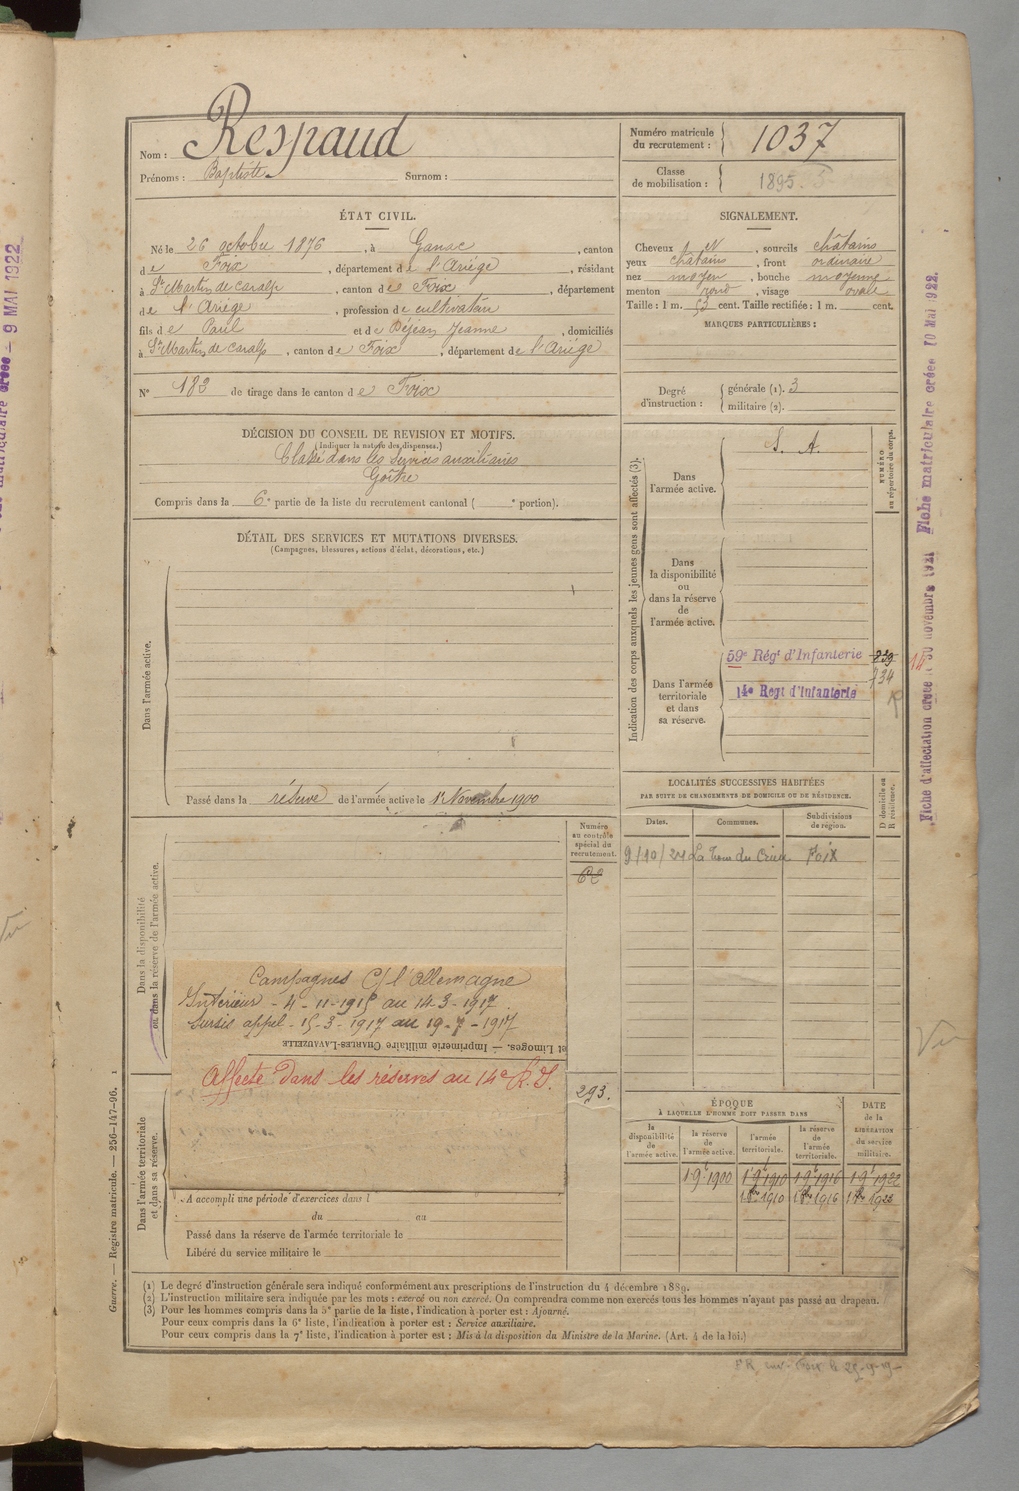 Nom : Respaud
Prénoms : Baptiste Surnom :
Numéro matricule du recrutement : 1037
Classe de mobilisation : 1895
ÉTAT CIVIL.
Né le 26 octobre 1876, à Ganac, canton
de Foix, département de l'Ariège, résidant
à St Martin de Caralp, canton de Foix, département
de l'Ariège, profession de cultivateur
fils de Paul et de Déjean Jeanne, domiciliés
à St Martin de Caralp, canton de Foix, département de l'Ariège
N° 183 de tirage dans le canton de Foix
SIGNALEMENT.
Cheveux, sourcils châtains
yeux châtains, front ordinaire
nez moyen, bouche moyenne
menton rond, visage ovale
Taille : 1 m. 53 cent. Taille rectifiée : 1 m. cent.
MARQUES PARTICULIÈRES :
Degré d'instruction : générale (1). 3
militaire (2).
DÉCISION DU CONSEIL DE REVISION ET MOTIFS.
(Indiquer la nature des dispenses.)
Classé dans les services auxiliaires
Goître
Compris dans la 6e partie de la liste du recrutement cantonal ( e portion).
DÉTAIL DES SERVICES ET MUTATIONS DIVERSES.
(Campagnes, blessures, actions d'éclat, décorations, etc.)
Dans l'armée active.
Passé dans la réserve de l'armée active le 1er Novembre 1900
Indication des corps auxquels les jeunes gens sont affectés (3).
NUMÉRO au répertoire du corps.
Dans l'armée active.
S. A.
Dans la disponibilité ou dans la réserve de l'armée active.
Dans l'armée territoriale et dans sa réserve.
59e Régt d'Infanterie
734
14e Regt d'Infanterie
LOCALITÉS SUCCESSIVES HABITÉES
PAR SUITE DE CHANGEMENTS DE DOMICILE OU DE RÉSIDENCE.
D domicile ou R résidence.
Dates. Communes. Subdivisions de région.
9/10/21 La Tour du Crieu Foix
Numéro au contrôle spécial du recrutement.
Dans la disponibilité ou dans la réserve de l'armée active.
Campagnes C/ l'Allemagne
Intérieur - 4-11-1915 au 14-3-1917
Sursis appel - 15-3-1917 au 19-7-1917
et Limoges. — Imprimerie militaire CHARLES-LAVAUZELLE
Affecté dans les réserves au 14e R.I.
293.
Dans l'armée territoriale et dans sa réserve.
A accompli une période d'exercices dans l
du au
Passé dans la réserve de l'armée territoriale le
Libéré du service militaire le
ÉPOQUE
A LAQUELLE L'HOMME DOIT PASSER DANS
la disponibilité de l'armée active.
la réserve de l'armée active.
l'armée territoriale.
la réserve de l'armée territoriale.
DATE de la LIBÉRATION du service militaire.
1 9e 1900 1 9e 1910 1 9e 1916 1 9e 1922
1 8bre 1910 1 8bre 1916 1 8bre 1922
(1) Le degré d'instruction générale sera indiqué conformément aux prescriptions de l'instruction du 4 décembre 1889.
(2) L'instruction militaire sera indiquée par les mots : exercé ou non exercé. On comprendra comme non exercés tous les hommes n'ayant pas passé au drapeau.
(3) Pour les hommes compris dans la 5e partie de la liste, l'indication à porter est : Ajourné.
Pour ceux compris dans la 6e liste, l'indication à porter est : Service auxiliaire.
Pour ceux compris dans la 7e liste, l'indication à porter est : Mis à la disposition du Ministre de la Marine. (Art. 4 de la loi.)
Guerre. — Registre matricule. — 256-147-96. 1
Fiche d'affectation créée le 30 novembre 1921 Fiche matriculaire créée 10 MAI 1922.
- 9 MAI 1922